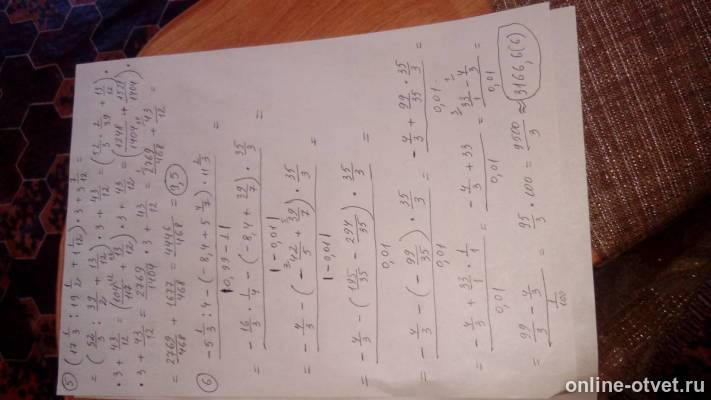 ⑤ (17 1/3 : 19 1/2 + 1 1/12) · 3 + 3 7/12 =
= (52/3 : 39/2 + 13/12) · 3 + 43/12 = (52/3 · 2/39 + 13/12) ·
· 3 + 43/12 = (104/117 + 13/12) · 3 + 43/12 = (1248/1404 + 1521/1404) ·
· 3 + 43/12 = 2769/1404 · 3 + 43/12 = 2769/468 + 43/12 =
= 2769/468 + 1677/468 = 4446/468 = 9,5
⑥ -5 1/3 : 4 - (-8,4 + 5 4/7) · 11 2/3 =
|0,99 - 1|
= -16/3 · 1/4 - (-8,4 + 39/7) · 35/3 =
|-0,01|
= -4/3 - (-42/5 + 39/7) · 35/3 =
|-0,01|
= -4/3 - (195/35 - 294/35) · 35/3 =
0,01
= -4/3 - (-99/35) · 35/3 = -4/3 + 99/35 · 35/3 =
0,01 0,01
= -4/3 + 33/1 · 1/1 = -4/3 + 33 = 33/1 - 4/3 =
0,01 0,01 0,01
= 99/3 - 4/3 = 95/3 · 100 = 9500/3 ≈ 3166,6(6)
1/100
online-otvet.ru